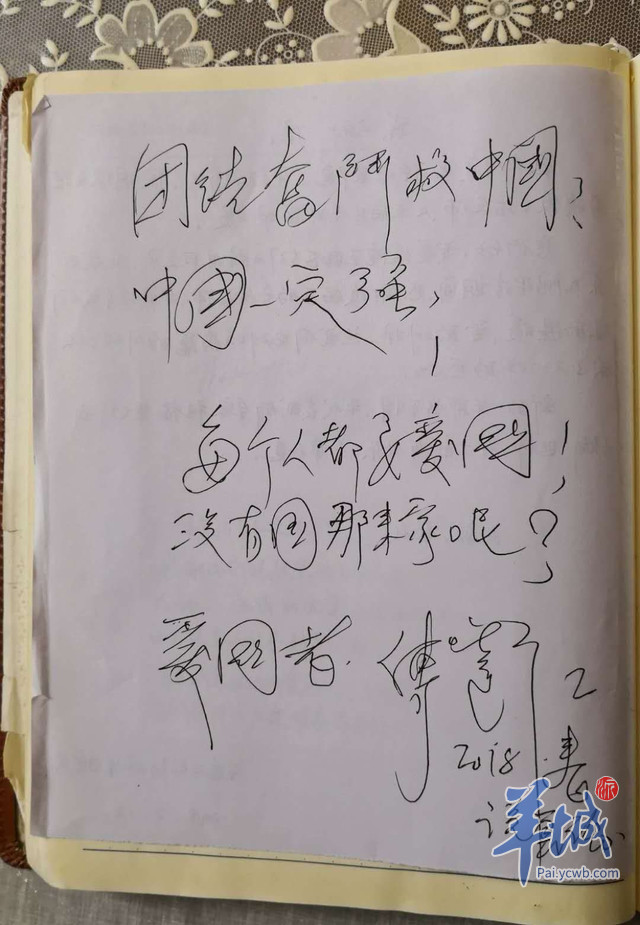 团结奋鬥救中國！
中國一定强！
每个人都要爱國！
没有国那来家呢？
爱国者
2018 春
羊城派
Pai.ycwb.com